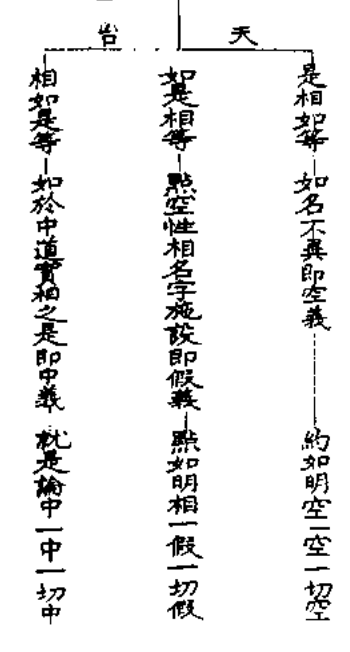 天台
是相如等 如名不異即空義 約如明空一空一切空
如是相等 點空性相名字施設即假義 點如明相一假一切假
相如是等 如於中道實相之是即中義 就是論中一中一切中